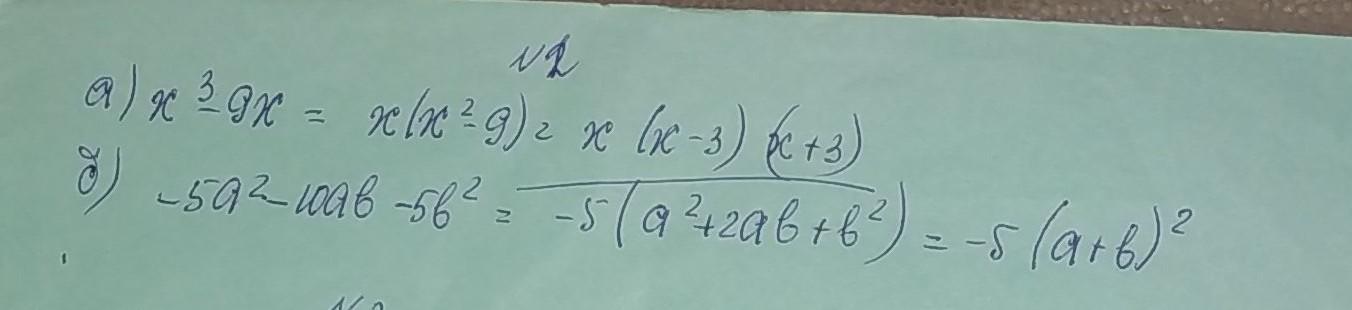 №2
а) x³-9x = x(x²-9) = x (x-3) (x+3)
б) -5a²-10ab-5b² = -5(a²+2ab+b²) = -5(a+b)²